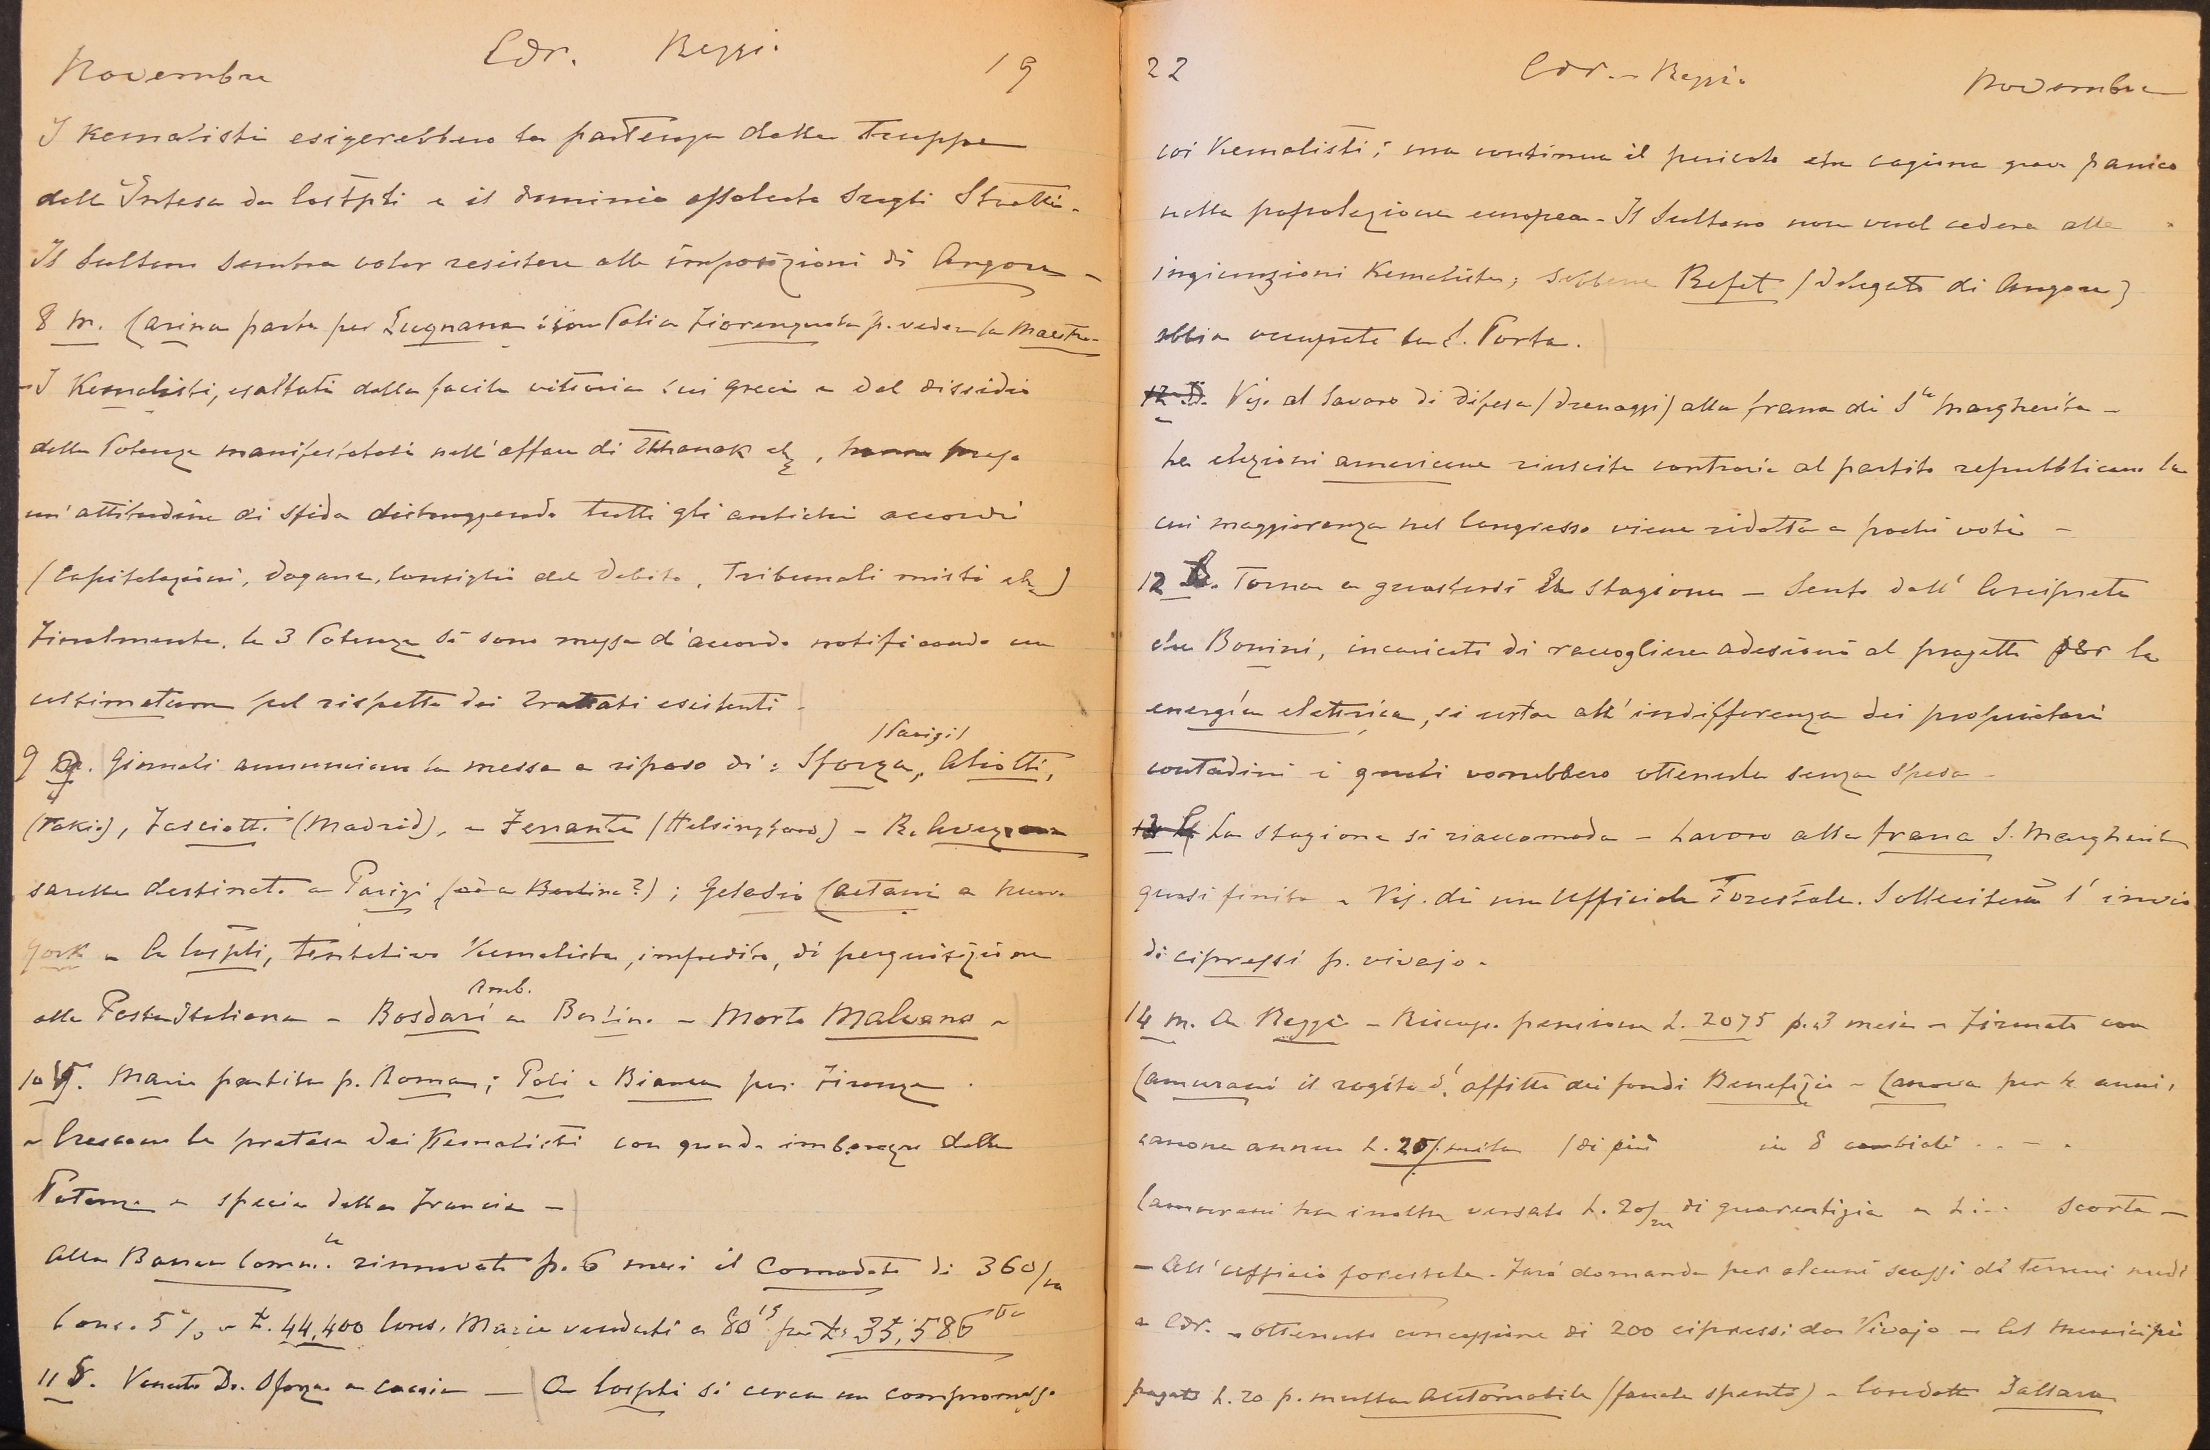 Novembre Cdr. Reggio 19
I Kemalisti esigerebbero la partenza delle Truppe
dell'Intesa da Costpli e il dominio assoluto sugli Stretti.
Il Sultano sembra voler resistere alle imposizioni di Angora -
8 m. Carina parte per Lugnana con Polia Fiorenzuola p. veder la Maestra -
- I Kemalisti, esaltati dalla facile vittoria sui greci e dal dissidio
delle Potenze manifestatosi nell'affare di Tchanak etc, hanno preso
un'attitudine di sfida distruggendo tutti gli antichi accordi
(Capitolazioni, Dogane, Consiglio del Debito, Tribunali misti etc)
Finalmente, le 3 Potenze si sono messe d'accordo notificando un
ultimatum pel rispetto dei trattati esistenti -
9 g. Giornali annunciano la messa a riposo di: Sforza (Parigi), Aliotti,
(Tokio), Fasciotti (Madrid), e Ferrante (Helsingfors) - R. Avezzana
sarebbe destinato a Parigi (o a Berlino?); Gelasio Caetani a New
York - A Costpli, tentativo Kemalista, impedito, di perquisizione
alla Posta Italiana - Bosdari Amb. a Berlino - Morto Malvano -
10 V. Maria partita p. Roma; Poli e Bianca per Firenze.
- Crescono le pretese dei Kemalisti con grande imbarazzo delle
Potenze e specie della Francia -
Alla Banca Comm.le rinnovato p. 6 mesi il Comodato di 360/m
Cons. 5% - £. 44,400 Cons. Maria venduti a 80 15 per £. 35,586
11 S. Venuto Dr. Sforza a caccia - A Costpli si cerca un compromesso
22 Cdr. - Reggio Novembre
coi Kemalisti; ma continua il pericolo che cagiona grave panico
nella popolazione europea - Il Sultano non vuol cedere alle
ingiunzioni Kemaliste; sebbene Refet (delegato di Angora)
abbia occupato la S. Porta.
12 D. Vis. al lavoro di difesa (drenaggi) alla frana di S.ta Margherita -
Le elezioni americane riuscite contrarie al partito repubblicano la
cui maggioranza nel Congresso viene ridotta a pochi voti -
12 D. Torna a guastarsi la stagione - Sento dall'Arciprete
che Bonini, incaricato di raccogliere adesioni al progetto per la
energia elettrica, si urta all'indifferenza dei proprietari
contadini i quali vorrebbero ottenerla senza spesa -
13 L. La stagione si riaccomoda - Lavoro alla frana S. Margherita
quasi finito - Vis. di un Ufficiale Forestale. Solleciterà l'invio
di cipressi p. vivajo -
14 m. A Reggio - Riscuo. pensione L. 2075 p. 3 mesi - Firmato con
Camurani il rogito d'affitto dei fondi Benefizio - Canova per anni,
canone annuo L. 25/mila (di più in 8 cambiali . . - .
Camurani ha inoltre versato L. 20/m di guarentigia e L... scorta -
- All'ufficio forestale. Farò domanda per alcuni scassi di terreni nudi
a Cdr. - Ottenuto concessione di 200 cipressi da Vivajo - Al Municipio
pagato L. 20 p. multa automobile (fanale spento) - Condotto Fattara